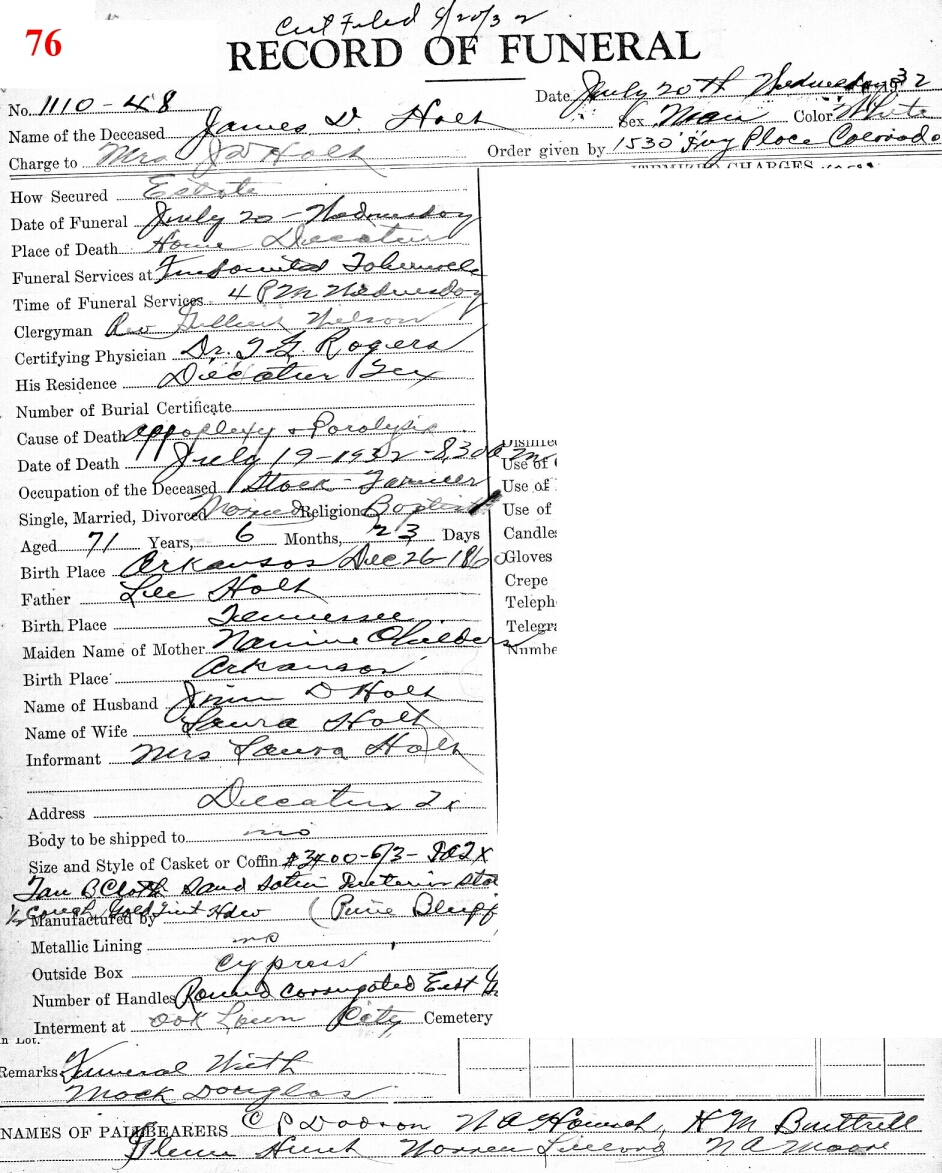 Cert Filed 9/20/32
76
RECORD OF FUNERAL
No. 1110-48 Date July 20th Wednesday 1932
Name of the Deceased James D. Holt Sex Man Color White
Charge to Mrs J D Holt Order given by 1530 Place Colorado
ITEMIZED CHARGES
How Secured Estate
Date of Funeral July 20 - Wednesday
Place of Death Home Decatur
Funeral Services at
Time of Funeral Services 4 PM Wednesday
Clergyman Rev Nelson
Certifying Physician Dr. T G Rogers
His Residence Decatur Tex
Number of Burial Certificate
Cause of Death Appoplexy & Paralysis
Date of Death July 19-1932-8,30
Occupation of the Deceased Stock-Farmer
Use of
Single, Married, Divorced Married Religion Baptist
Use of
Aged 71 Years, 6 Months, 23 Days
Candles
Birth Place Arkansas Dec 26 1860
Gloves
Father Lee Holt
Crepe
Birth Place Tennessee
Teleph
Maiden Name of Mother Nannie Childers
Telegra
Birth Place Arkansas
Numbe
Name of Husband Jim D Holt
Name of Wife Laura Holt
Informant Mrs Laura Holt
Address Decatur Tx
Body to be shipped to no
Size and Style of Casket or Coffin #3400-6/3-
Tan B Cloth Sand Satin Interior
1/2 Couch Gold Tint Hdw (Pine Bluff
Manufactured by
Metallic Lining no
Outside Box Cypress
Number of Handles Round Corrugated Ext
Interment at Oak Lawn City Cemetery
n Lot.
Remarks Funeral With
Mack Douglas
NAMES OF PALLBEARERS C P Dodson N A H M Buttrell
Glenn Hunt Warren N A Moore